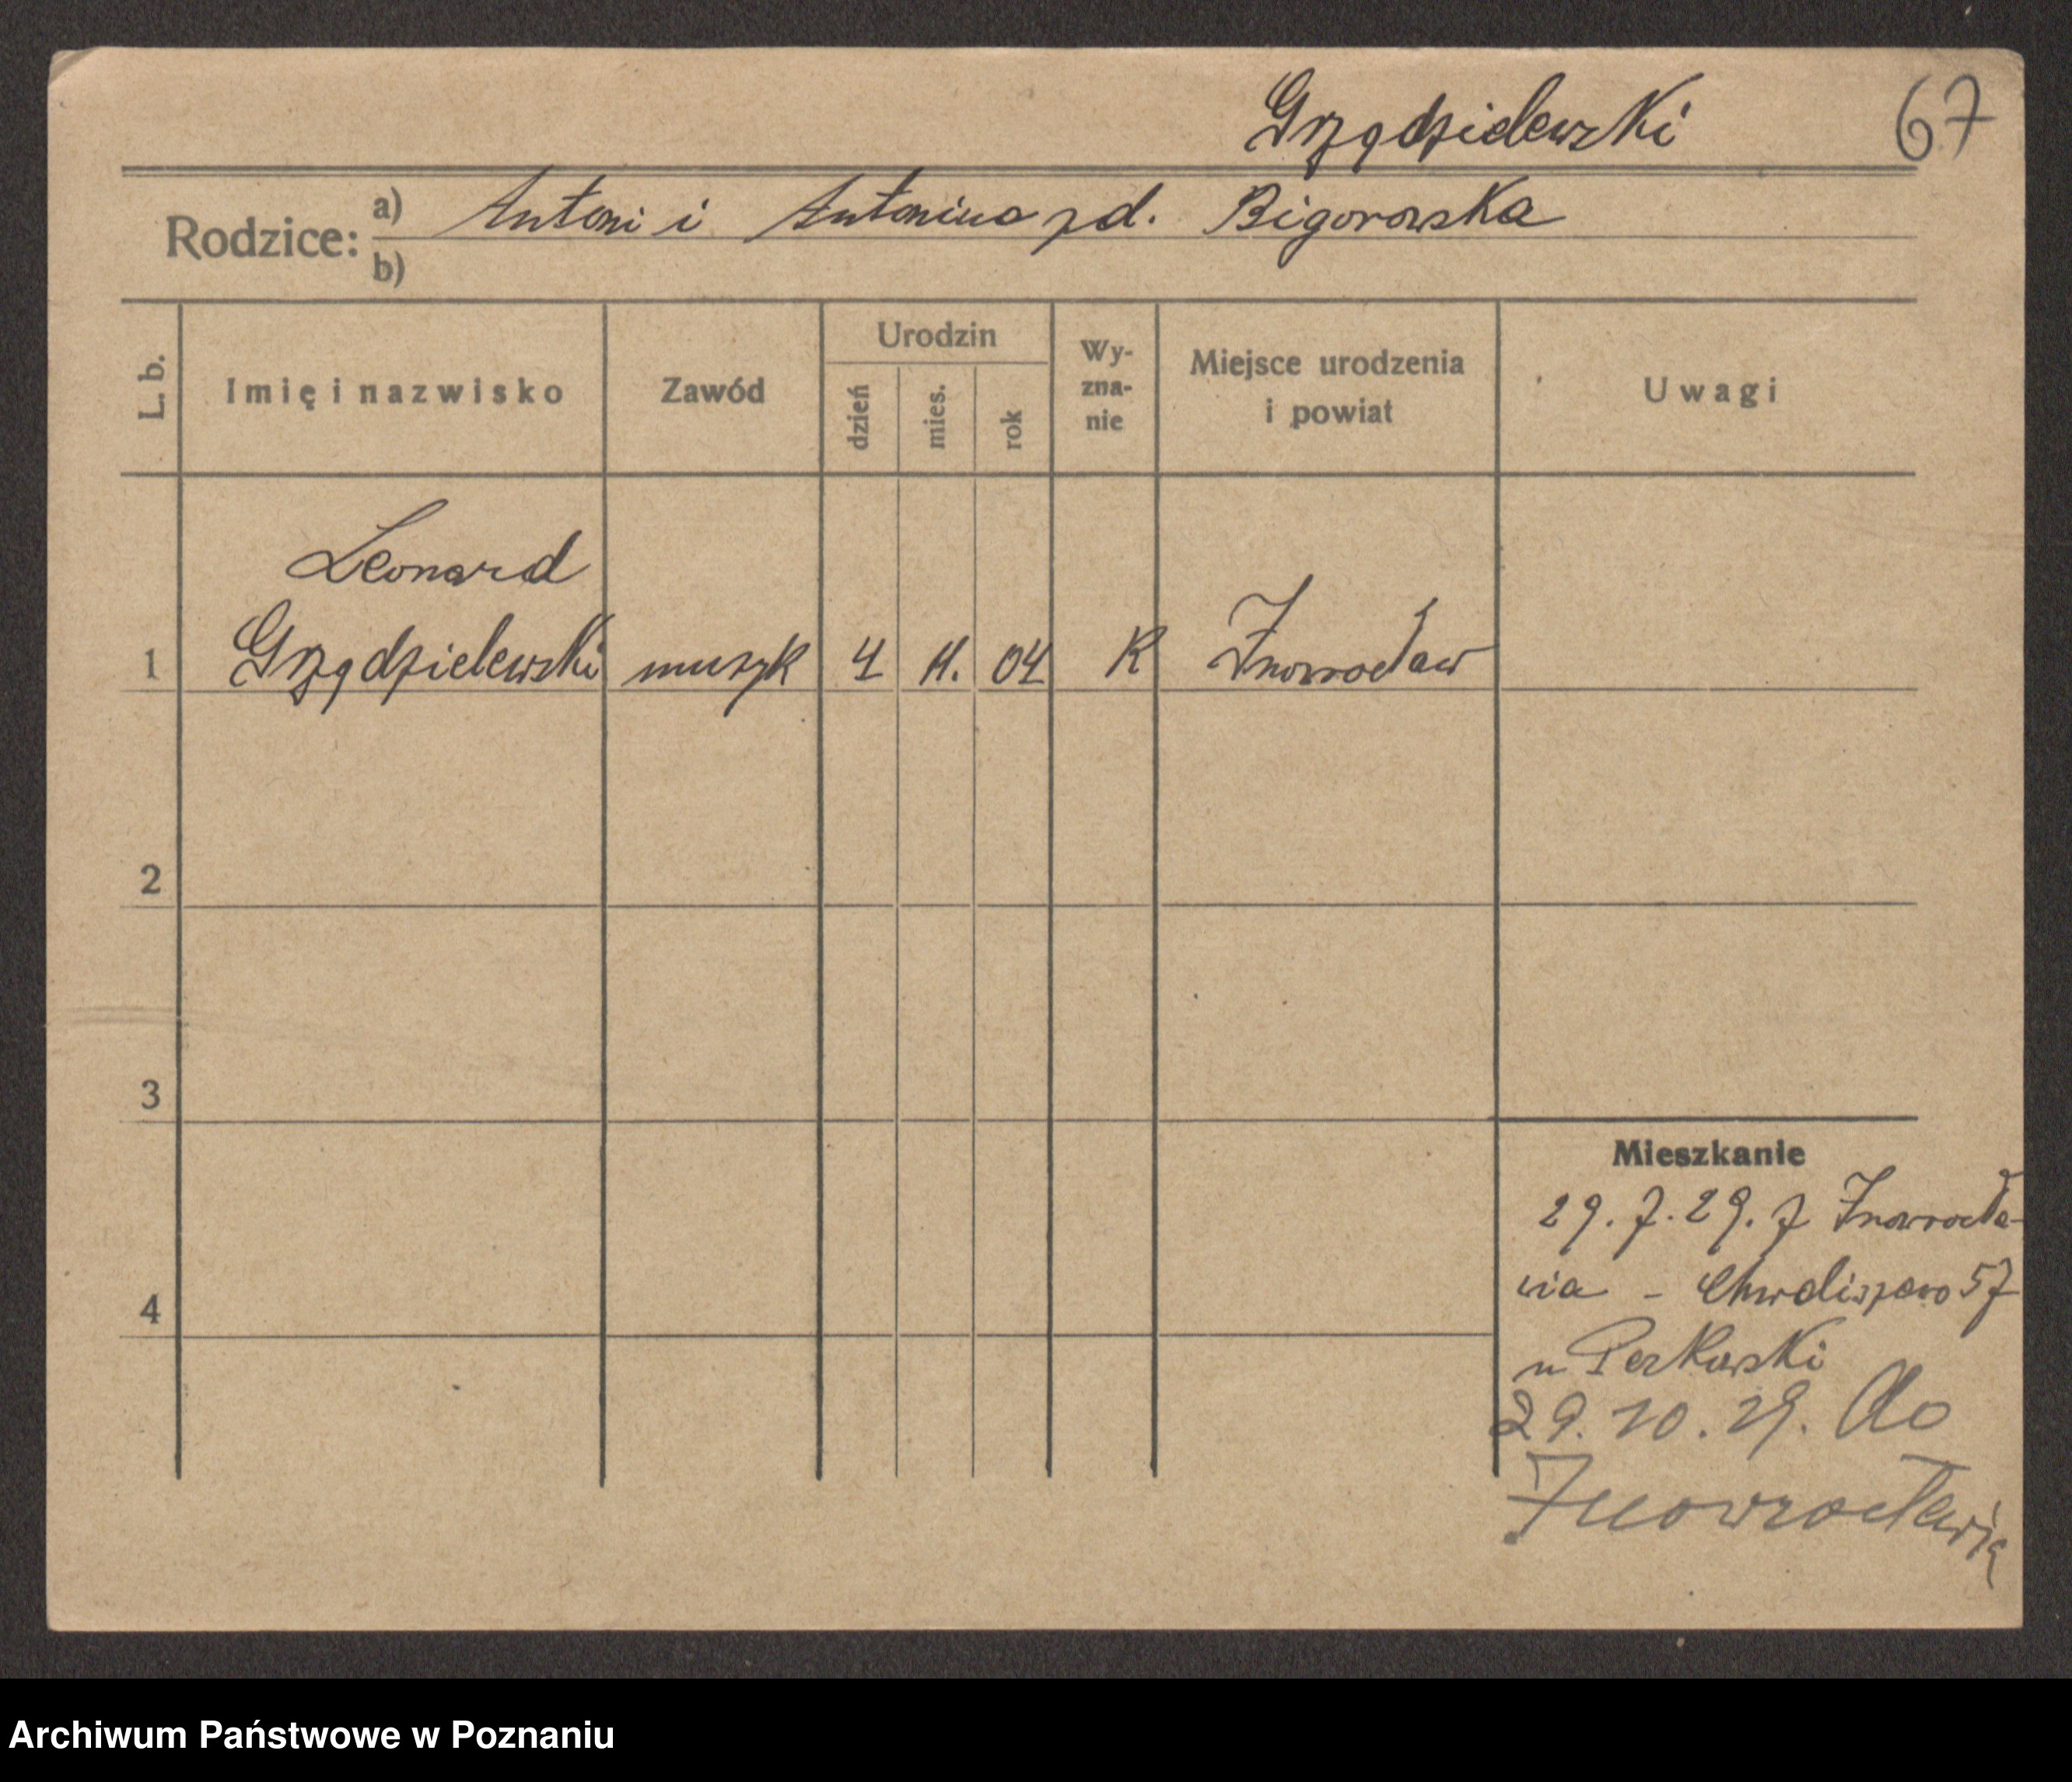 Grządzielewski 67
Rodzice: a) Antoni i Antonina zd. Bigorowska
b)
L. b. Imię i nazwisko Zawód Urodzin dzień mies. rok Wy-zna-nie Miejsce urodzenia i powiat Uwagi
Leonard
1 Grządzielewski muzyk 4 11. 04 R Inowrocław
2
3
4
Mieszkanie
29. 7. 29. z Inowrocła-
wia - 57
u
29. 10. 29. do
Inowrocławia
Archiwum Państwowe w Poznaniu